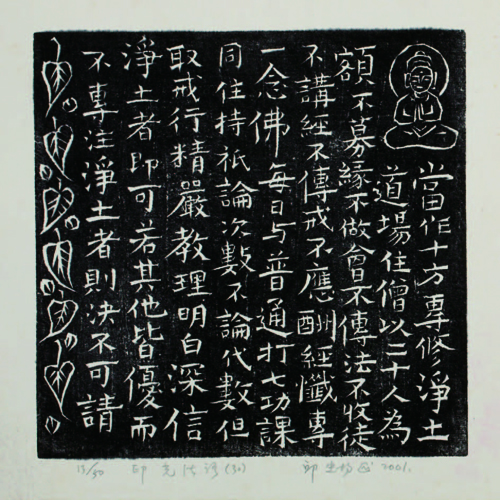 當作十方專修淨土
道場住僧以二十人為
額不募緣不做會不傳法不收徒
不講經不傳戒不應酬經懺專
一念佛每日与普通打七功課
同住持祇論次數不論代數但
取戒行精嚴教理明白深信
淨土者即可若其他皆優而
不專注淨土者則決不可請
印光法語(30)
2001.